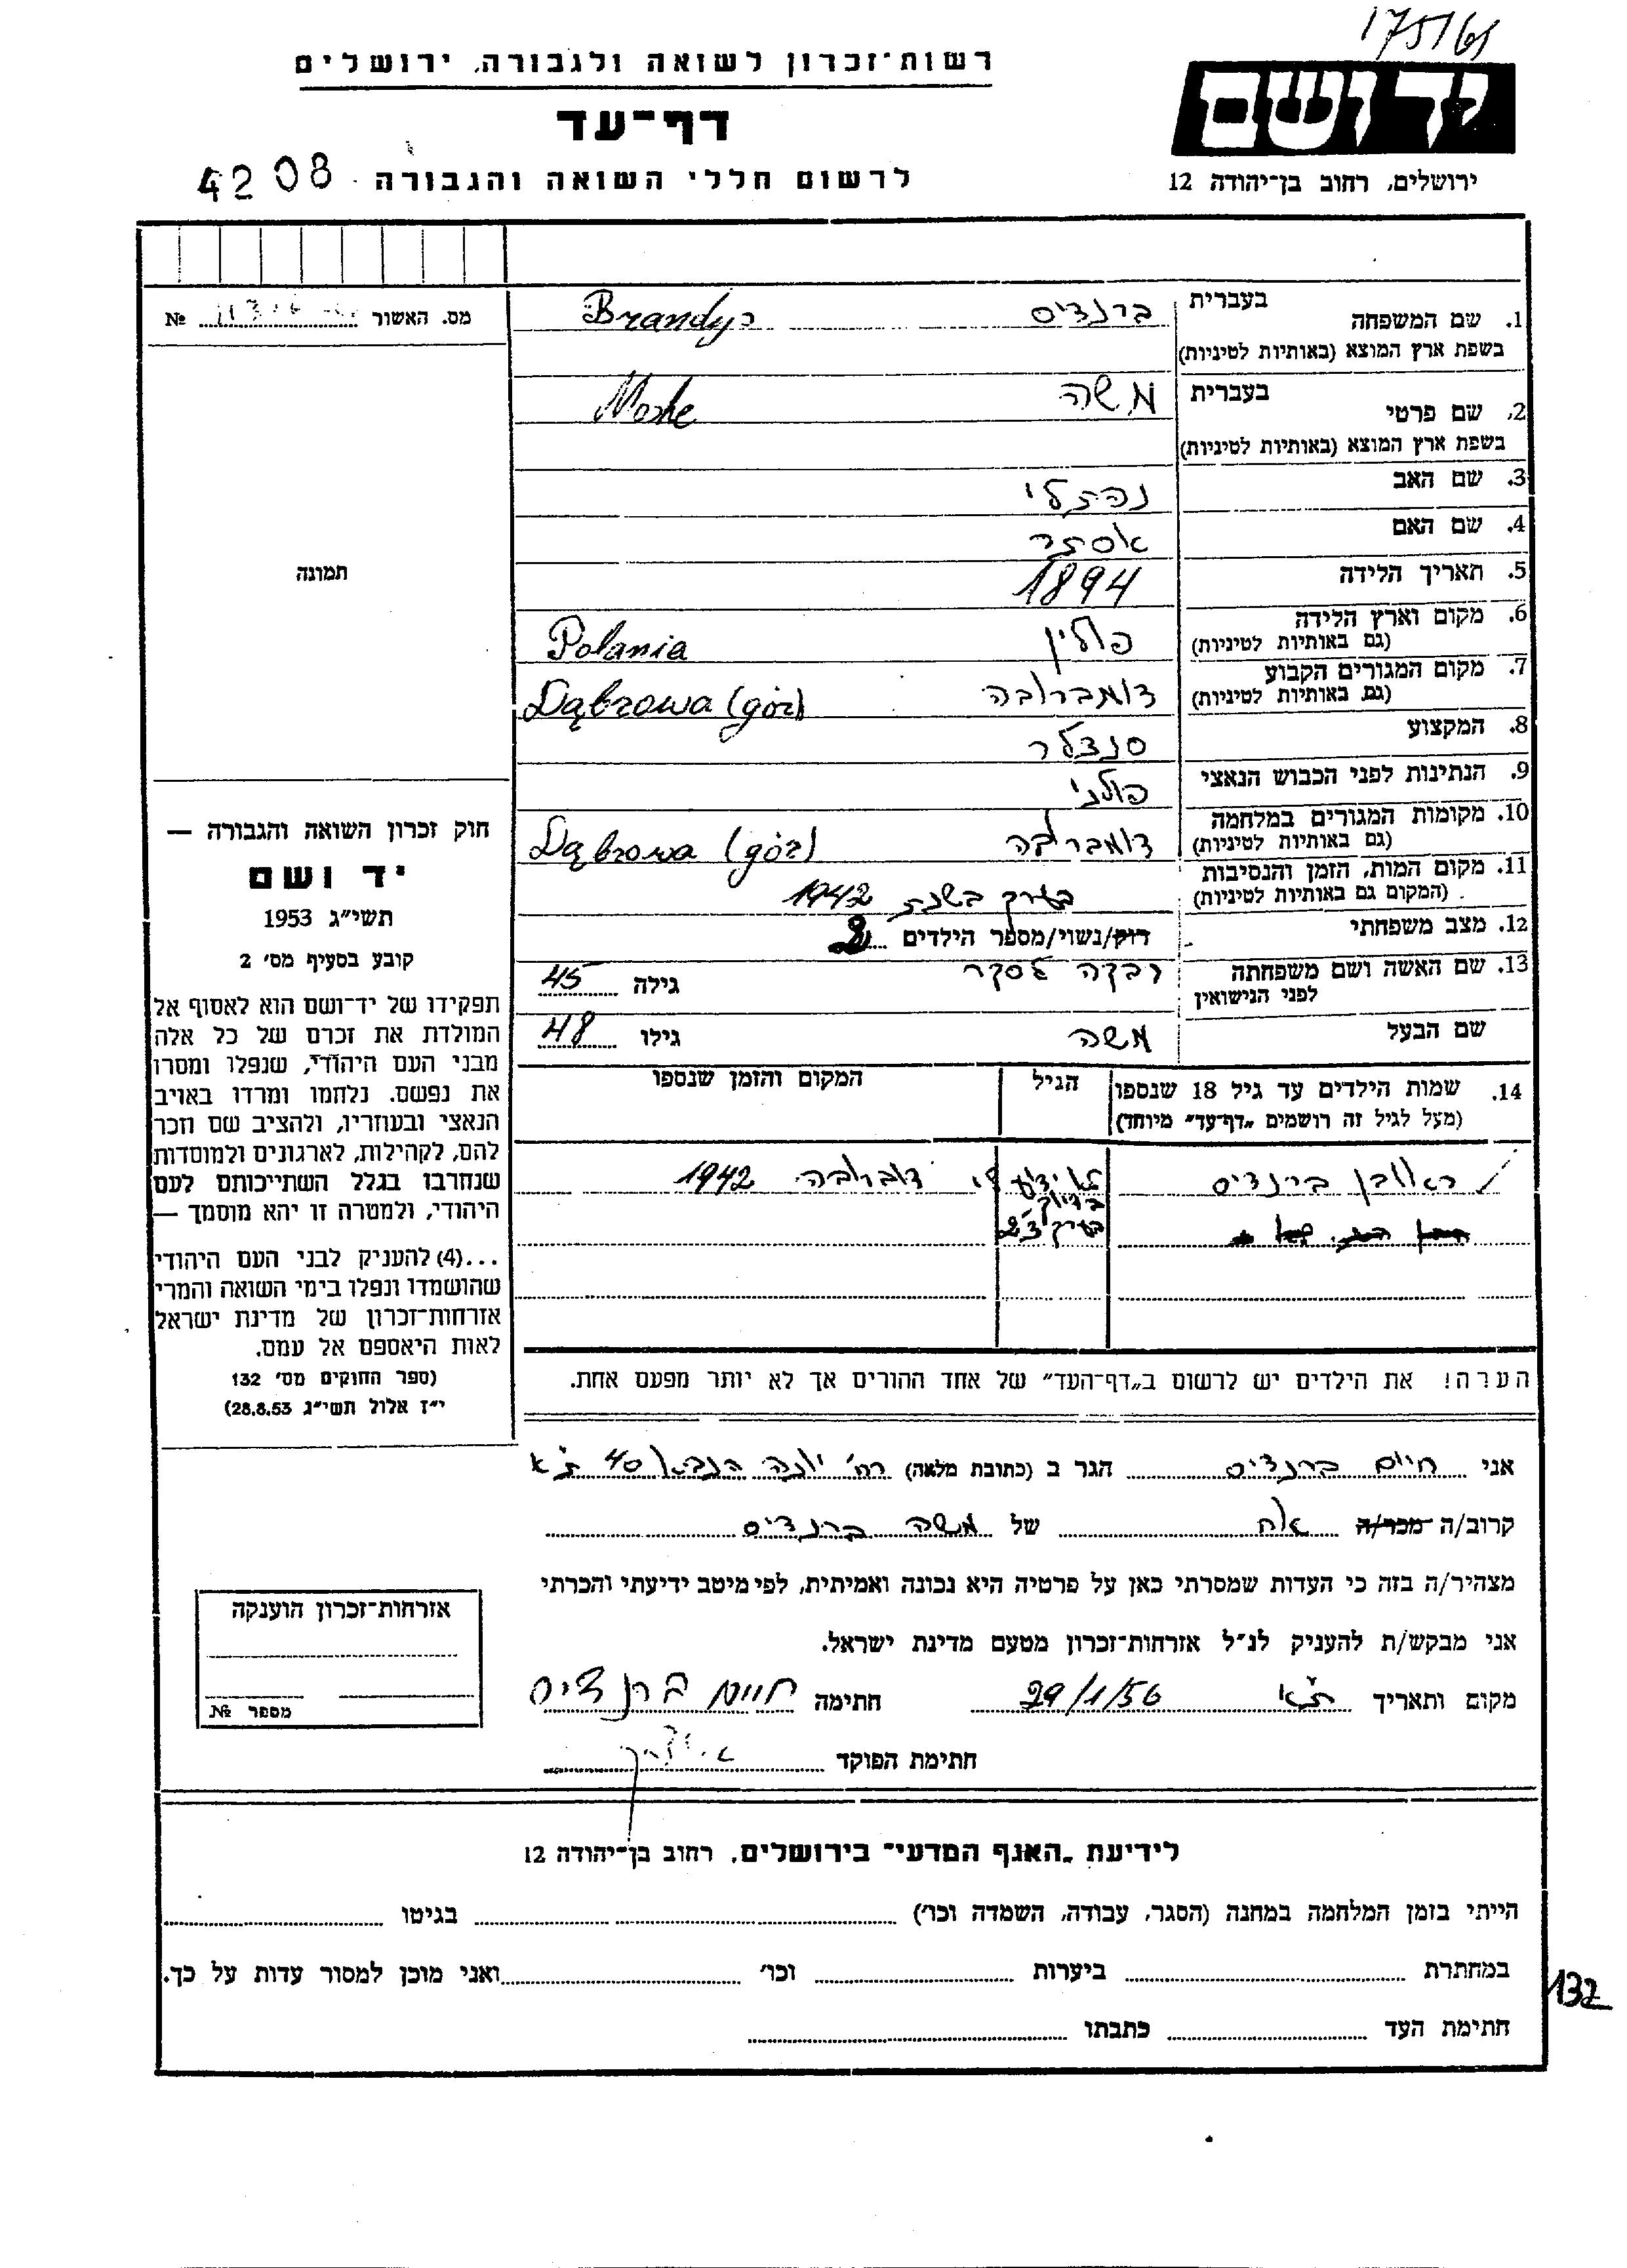 175/61
רשות־זכרון לשואה ולגבורה, ירושלים
יד ושם
דף־עד
לרשום חללי השואה והגבורה 4208
ירושלים, רחוב בן־יהודה 12
מס. האשור № 
1. שם המשפחה בעברית ברנדיס Brandys
בשפת ארץ המוצא (באותיות לטיניות)
2. שם פרטי בעברית משה Moshe
בשפת ארץ המוצא (באותיות לטיניות)
3. שם האב נפתלי
4. שם האם אסתר
5. תאריך הלידה 1894
6. מקום וארץ הלידה פולין Polania
(גם באותיות לטיניות)
7. מקום המגורים הקבוע דומברובה Dąbrowa (gór)
(גם באותיות לטיניות)
8. המקצוע סנדלר
9. הנתינות לפני הכבוש הנאצי פולני
10. מקומות המגורים במלחמה דומברובה Dąbrowa (gór)
(גם באותיות לטיניות)
11. מקום המות, הזמן והנסיבות בערך בשנת 1942
(המקום גם באותיות לטיניות)
12. מצב משפחתי רוק/נשוי/מספר הילדים 2
13. שם האשה ושם משפחתה רבקה לסקר גילה 45
לפני הנישואין
שם הבעל משה גילו 48
14. שמות הילדים עד גיל 18 שנספו הגיל המקום והזמן שנספו
(מעל לגיל זה רושמים „דף־עד" מיוחד)
ראובן ברנדיס לא ידע דומברובה 1942
בדיוק
בערך
הערה! את הילדים יש לרשום ב„דף־העד" של אחד ההורים אך לא יותר מפעם אחת.
תמונה
חוק זכרון השואה והגבורה —
יד ושם
תשי״ג 1953
קובע בסעיף מס׳ 2
תפקידו של יד־ושם הוא לאסוף אל
המולדת את זכרם של כל אלה
מבני העם היהודי, שנפלו ומסרו
את נפשם. נלחמו ומרדו באויב
הנאצי ובעוזריו, ולהציב שם וזכר
להם, לקהילות, לארגונים ולמוסדות
שנחרבו בגלל השתייכותם לעם
היהודי, ולמטרה זו יהא מוסמך —
...(4) להעניק לבני העם היהודי
שהושמדו ונפלו בימי השואה והמרי
אזרחות־זכרון של מדינת ישראל
לאות היאספם אל עמם.
(ספר החוקים מס׳ 132
י״ז אלול תשי״ג 28.8.53)
אני חיים ברנדיס הגר ב (כתובת מלאה) רח' יונה הנביא 40 ת"א
קרוב/ה מכר/ה אח של משה ברנדיס
מצהיר/ה בזה כי העדות שמסרתי כאן על פרטיה היא נכונה ואמיתית, לפי מיטב ידיעתי והכרתי
אני מבקש/ת להעניק לנ״ל אזרחות־זכרון מטעם מדינת ישראל.
מקום ותאריך ת"א 29/1/56 חתימה חיים ברנדיס
חתימת הפוקד
אזרחות־זכרון הוענקה
מספר №
לידיעת „האגף המדעי" בירושלים, רחוב בן־יהודה 12
הייתי בזמן המלחמה במחנה (הסגר, עבודה, השמדה וכו׳) בגיטו
במחתרת ביערות וכו׳ ואני מוכן למסור עדות על כך.
חתימת העד כתבתו
132